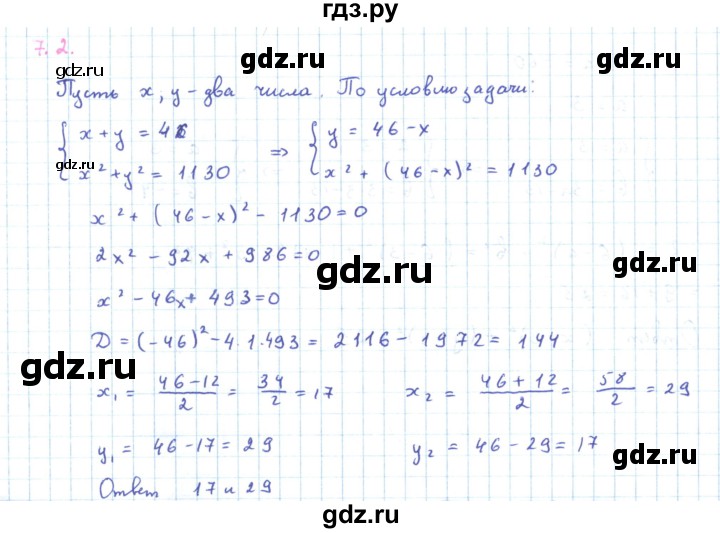 гдз.ру
7.2.
gdz.ru
gdz.ru
gdz.ru
Пусть x, y - два числа. По условию задачи:
{ x + y = 46 ⇒ { y = 46 - x
x² + y² = 1130 x² + (46 - x)² = 1130
gdz.ru
gdz.ru
x² + (46 - x)² - 1130 = 0
2x² - 92x + 986 = 0
gdz.ru
x² - 46x + 493 = 0
D = (-46)² - 4·1·493 = 2116 - 1972 = 144
gdz.ru
x₁ = (46-12)/2 = 34/2 = 17 x₂ = (46+12)/2 = 58/2 = 29
y₁ = 46 - 17 = 29 y₂ = 46 - 29 = 17
gdz.ru
gdz.ru
Ответ 17 и 29
gdz.ru